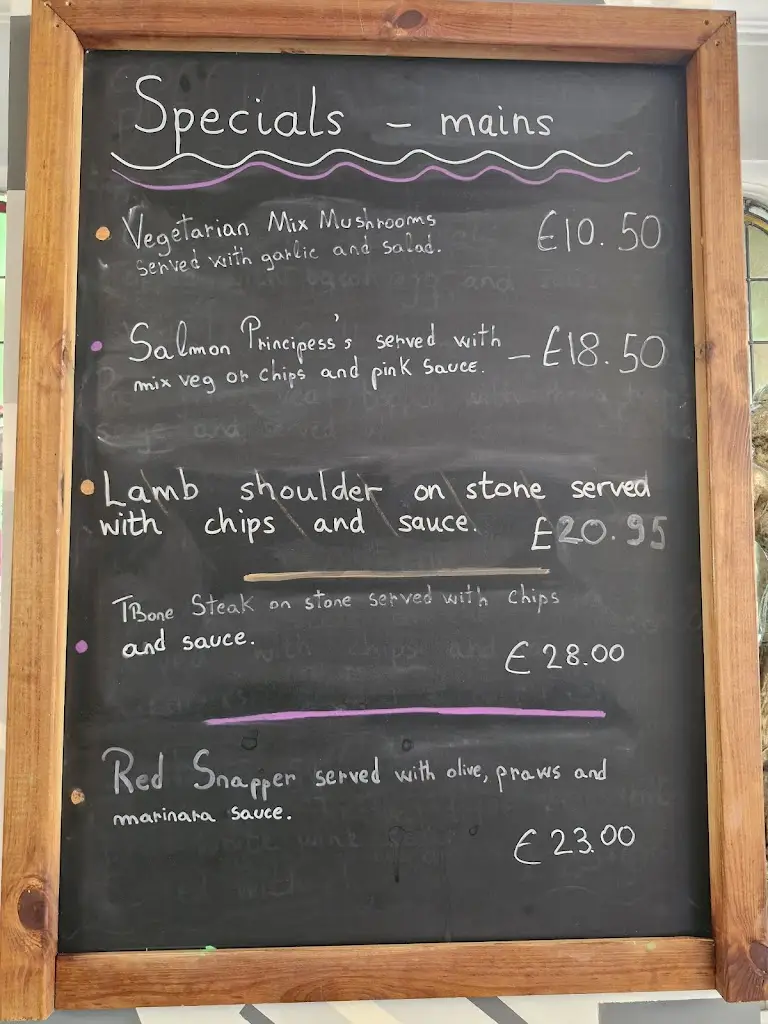 Specials - mains
Vegetarian Mix Mushrooms
served with garlic and salad.
£10.50
Salmon Principess's served with
mix veg or chips and pink sauce.
- £18.50
Lamb shoulder on stone served
with chips and sauce. £20.95
TBone Steak on stone served with chips
and sauce.
£28.00
Red Snapper served with olive, praws and
marinara sauce.
£23.00